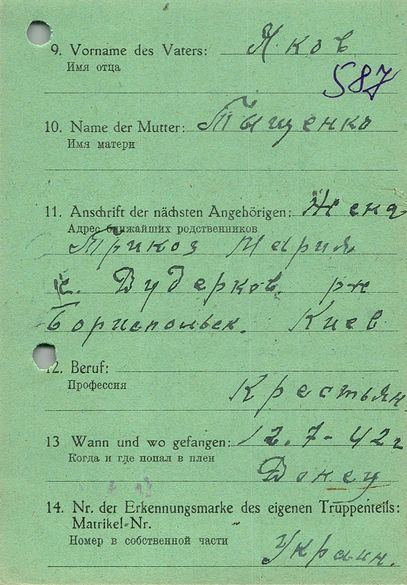 9. Vorname des Vaters: Яков
Имя отца
587
10. Name der Mutter: Тыщенко
Имя матери
11. Anschrift der nächsten Angehörigen: Жена
Адрес ближайших родственников
Трикоз Мария
с. Вудерков рн
Бориспольск. Киев
12. Beruf:
Профессия
Крестьян
13 Wann und wo gefangen: 12.7-42г
Когда и где попал в плен
Донец
14. Nr. der Erkennungsmarke des eigenen Truppenteils:
Matrikel-Nr.
Номер в собственной части
Украин.